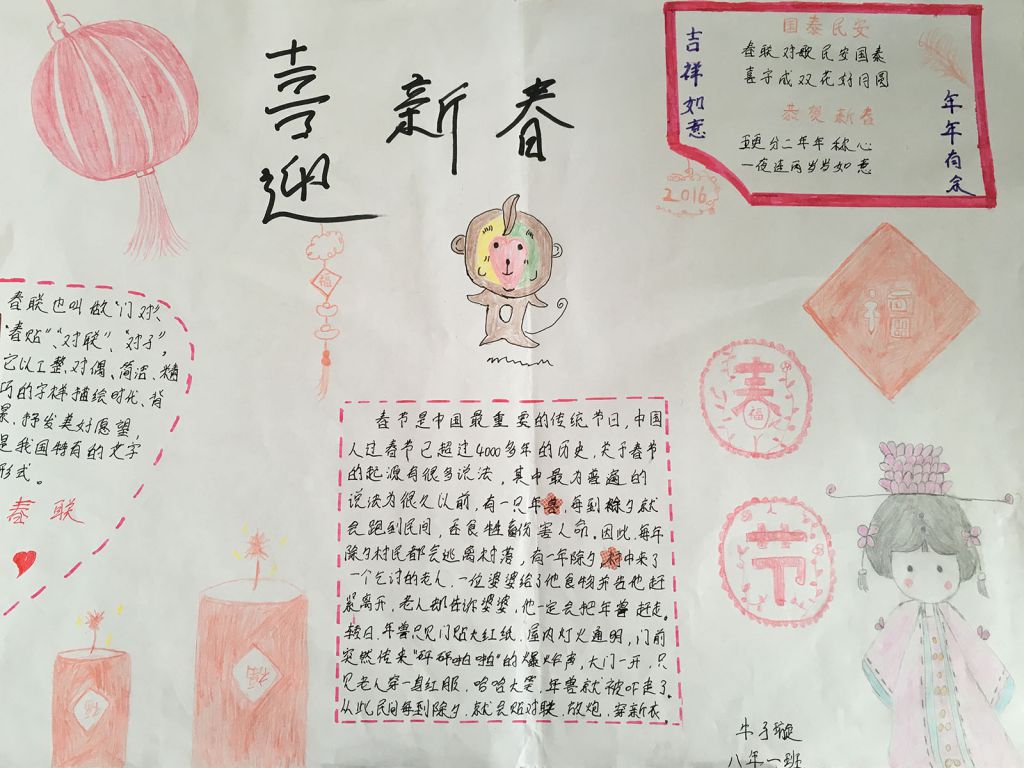 喜迎
新春
吉祥如意
国泰民安
春联对歌民安国泰
喜字成双花好月圆
恭贺新春
五更分二年年称心
一夜连两岁岁如意
年年有余
2016
福
福
春
福
节
春联也叫做“门对”、
“春贴”、“对联”、“对子”,
它以工整、对偶、简洁、精
巧的字样描绘时代、背
景,抒发美好愿望,
是我国特有的文字
形式。
春联
春节是中国最重要的传统节日,中国
人过春节已超过4000多年的历史,关于春节
的起源有很多说法,其中最为普遍的
说法为很久以前,有一只年兽,每到除夕就
会跑到民间,还食牲畜伤害人命。因此,每年
除夕村民都会逃离村落,有一年除夕村中来了
一个乞讨的老人,一位婆婆给了他食物并告他赶
紧离开,老人却告诉婆婆,他一定会把年兽赶走。
较日,年兽只见门贴大红纸,屋内灯火通明,门前
突然传来“砰砰啪啪”的爆炸声,大门一开,只
见老人穿一身红服,哈哈大笑,年兽就被吓走了。
从此民间每到除夕,就会贴对联,放炮,穿新衣。
福
福
牛子璇
八年一班